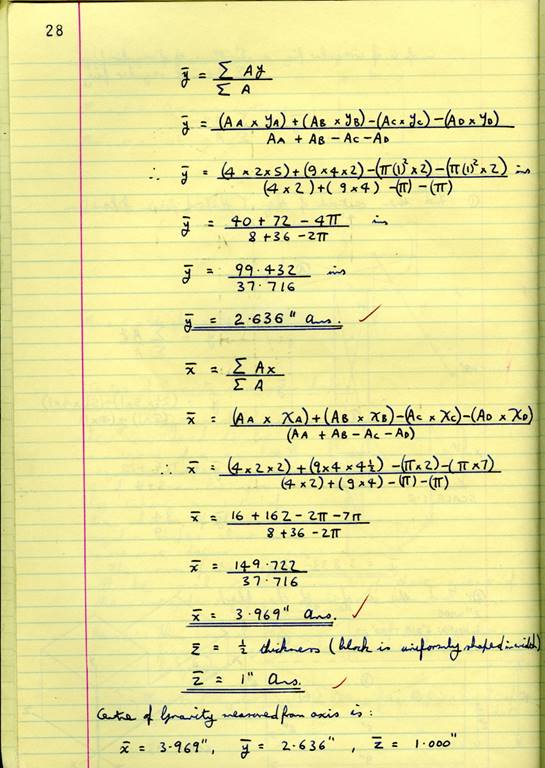 28
ȳ = Σ Ay / Σ A
ȳ = (AA × yA) + (AB × yB) – (AC × yC) – (AD × yD) / AA + AB – AC – AD
∴ ȳ = (4 × 2 × 5) + (9 × 4 × 2) – (π(1)² × 2) – (π(1)² × 2) / (4 × 2) + (9 × 4) – (π) – (π) ins
ȳ = 40 + 72 – 4π / 8 + 36 – 2π ins
ȳ = 99·432 / 37·716 ins
ȳ = 2·636" Ans. ✓
x̄ = Σ Ax / Σ A
x̄ = (AA × xA) + (AB × xB) – (AC × xC) – (AD × xD) / (AA + AB – AC – AD)
∴ x̄ = (4 × 2 × 2) + (9 × 4 × 4½) – (π × 2) – (π × 7) / (4 × 2) + (9 × 4) – (π) – (π)
x̄ = 16 + 162 – 2π – 7π / 8 + 36 – 2π
x̄ = 149·722 / 37·716
x̄ = 3·969" Ans. ✓
z̄ = ½ thickness (block is uniformly shaped in width)
z̄ = 1" Ans. ✓
Centre of Gravity measured from axis is:
x̄ = 3·969", ȳ = 2·636", z̄ = 1·000"